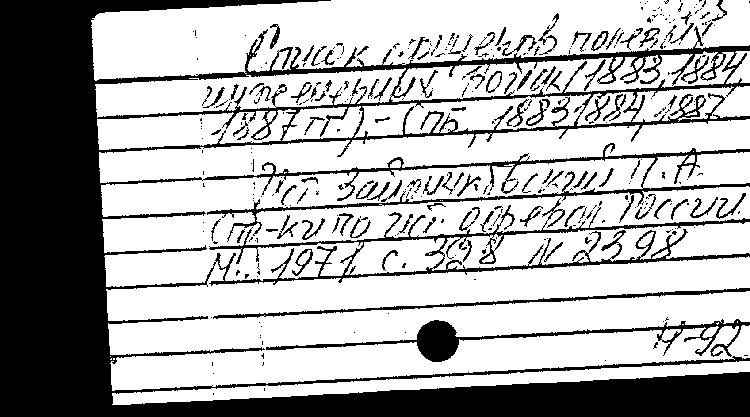 Список офицеров полевых
инженерных войск (1883, 1884,
1887 гг.). - СПБ., 1883, 1884, 1887
Ист. Зайончковский П. А.
Спр-ки по ист. доревол. России.
М., 1971, с. 328 N 2398
Н-92